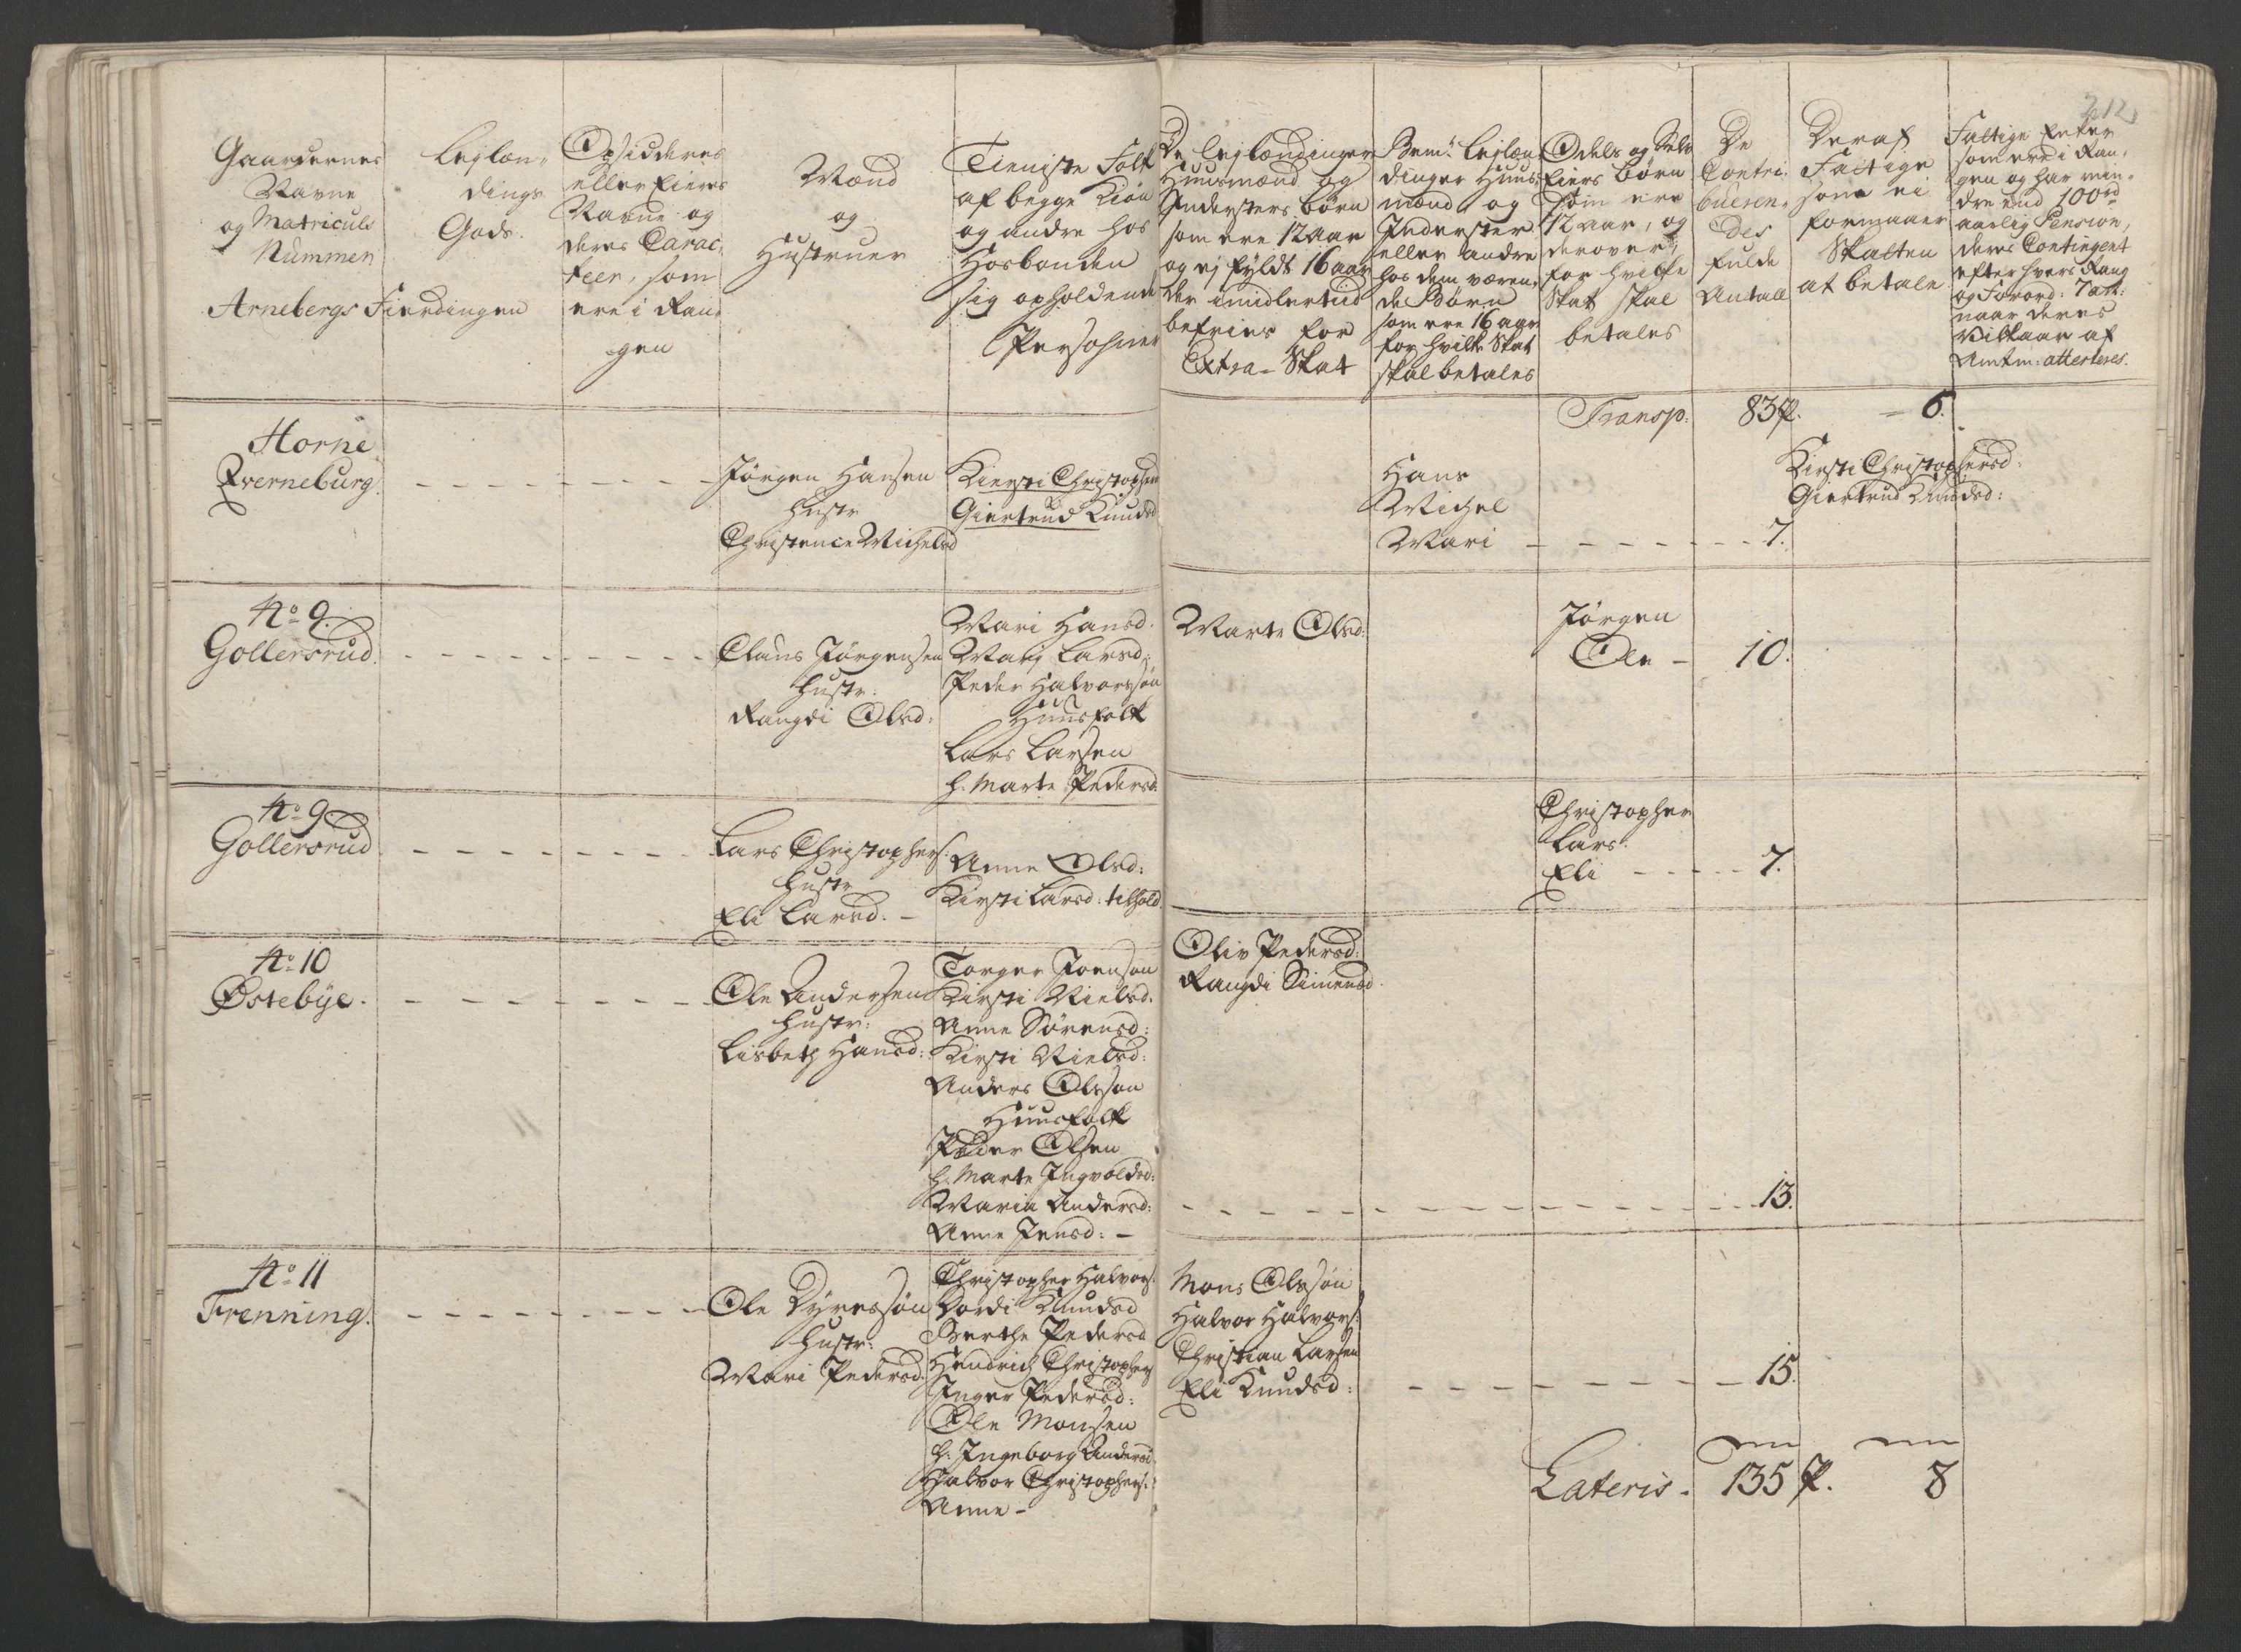 212
Gaardernes
Navne
og Matriculs
Nummer
Arnebergs Fierdingen
Lejlæn-
dings
Gods.
Opsidderes
eller Eieres
Navne og
deres Carac-
teer, som
ere i Ran-
gen
Mænd
og
Hustruer
Tieniste Folk
af begge Kiøn
og andre hos
Hosbonden
sig opholdene
Persohner
De Lejlændinger
Huusmænd og
Indersters Børn
som ere 12 aar
og ej fyldt 16 aar
der imidlertiid
befries for
Extra-Skat
Bem: Lejlæn
dinger Huus-
mænd og
Inderster
eller andre
hos dem væren-
de Børn
som ere 16 aar
for hvilke Skat
skal betales
Odels og Selv
Eiers Børn
som ere
12 aar, og
derover,
for hvilke
Skat skal
betales
De
Contri-
bueren-
des
fulde
Antall
Deraf
Fattige
som ei
formaaer
Skatten
at betale
Fattige Enker
som ere i Ran-
gen og har min-
dre end 100 rd
aarlig Pension,
deres Contingent
efter hvers Rang
og Forord: 7 art:
naar deres
Vilkaar af
Amtm: attesteres.
Transp: 83 p. - 6.
Horne
Qverneburg.
Jørgen Hansen
Hustr
Christence Michelsd
Kiersti Christophers
Giertrud Knudsd
Hans
Michel
Mari - 7.
Kirsti Christophersd:
Giertrud Knudsd:
No 9.
Gollersrud.
Claus Jørgensen
Hustr:
Rangdi Olsd:
Mari Hansd.
Mari Larsd:
Peder Halvorssøn
Huusfolk
Lars Larsen
H. Marte Pedersd
Marte Olsd:
Jørgen
Ole - 10.
No 9
Gollersrud
Lars Christophers.
Hustr
Eli Larsd. -
Anne Olsd:
Kirsti Larsd: tilhold
Christopher
Lars.
Eli - 7.
No 10
Østebye.
Ole Andersen
Hustr:
Lisbeth Hansd:
Torger Joensøn
Kirsti Nielsd.
Anne Sørensd:
Kirsti Nielsd:
Anders Olssøn
Huusfolk
Peder Olsen
H. Marte Ingvoldsd:
Maria Andersd:
Anne Jensd: -
Oliv Pedersd:
Rangdi Simensd.
13.
No 11
Frenning.
Ole Dyressøn
Hustr:
Mari Pedersd.
Christopher Halvors:
Dordi Knudsd
Berthe Pedersd
Hendrich Christophers
Inger Pedersd:
Ole Monsen
H. Ingeborg Andersd
Halvor Christophers:
Anne -
Mons Olssøn
Halvor Halvors:
Christian Larsen
Eli Knudsd:
15.
Lateris. 135 p. 8